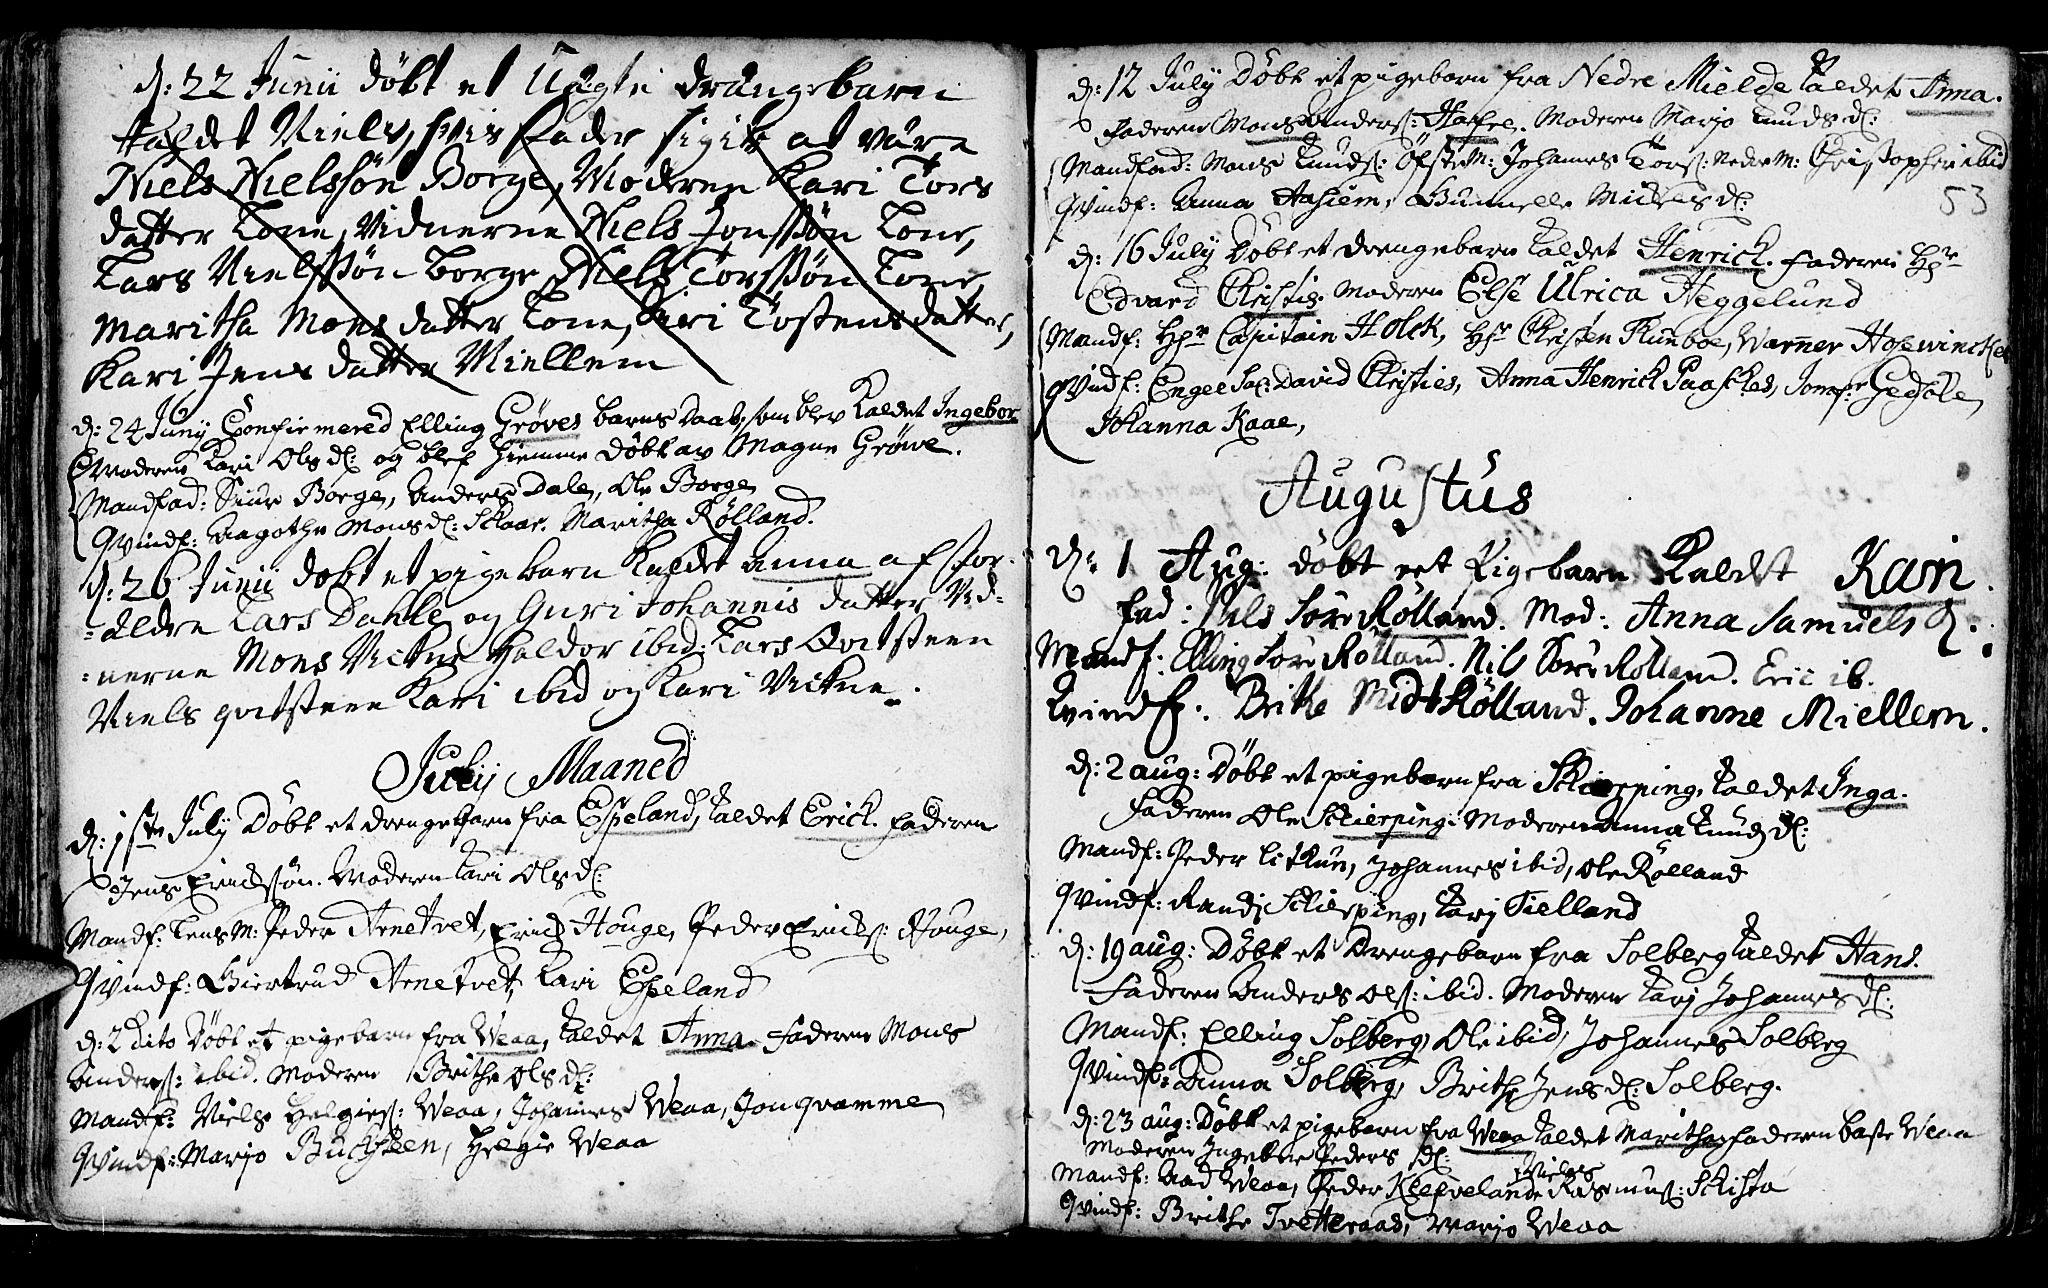 d: 22 Junii döbt et Uægte drængebarn
Kaldet Niels, hvis fader sigis at være
Niels Nielssön Borge, Moderen Kari Tors
datter Tone, Vidnerne Niels Jonssön Tone,
Lars Nielssön Borge, Niels Torssön Tone,
Maritha Mons datter Tone, Kari Tostens datter,
Kari Jens datter Miellem
d: 24 Junij Confirmered Elling Gröves barns Daab, som blev Kaldet Ingebor
Moderen Kari Ols d: og blef hiemme Döbt av Magne Gröve.
Mandfad: Siur Borge, Anders Dale, Ole Borge
Qvindf: Aagothe Mons d: Skaar. Maritha Rölland.
d: 26 Junii döbt et pigebarn Kaldet Anna af For-
-ældre Lars Dahle og Guri Johannis datter Vid-
-nerne Mons Vickne Haldor ibid: Lars Qvitsteen
Niels qvitsteen Kari ibid og Kari Vickne.
Julij Maaned
d: 1ste July Döbt et drengebarn fra Espeland, Kaldet Erick. Faderen
Jens Erickssön. Moderen Kari Ols d:
Mandf: Lens M: Peder Arnetvet, Erick Houge, Peder Ericks: Houge,
Qvindf: Giertrud Arnetvet, Kari Espeland
d: 2 dito Döbt et pigebarn fra Weaa, Kaldet Anna. Faderen Mons
Anders: ibid. Moderen Brithe Ols d:
Mandf: Niels Helgies: Weaa, Johannes Weaa, Jon qvamme
Qvindf: Marjo Bucksteen, Helgie Weaa
d: 12 July Döbt et pigebarn fra Nedre Mielde Kaldet Anna.
Faderen Mons Anders: Moderen Marjo Knuds d:
Mandfad: Mons Knuds: Öfste M: Johannes Tors: Nedre M: Christopher ibid
Qvindf: Anna Aasiem, Gunnelle Michels d:
53
d: 16 July Döbt et drengebarn Kaldet Henrick. Faderen Hr
Edvard Christie. Moderen Else Ulrica Heggelund
Mandf: Hr Capitain Holck, Hr Christen Runboe, Warner Hosewinckel
Qvindf: Engel Sal: David Christies, Anna Henrich Paasches, Jomfr Gedsöle,
Johanna Kaae,
Augustus
d: 1 Aug: döbt eet Pigebarn Kaldet Kari.
Fad: Nils Söre Rölland. Mod: Anna Samuels d.
Mandf: Elling Söre Rölland. Nils Söre Rölland. Eric ib.
Kvindf: Brithe Midt Rölland. Johanne Miellem.
d: 2 aug: Döbt et pigebarn fra Skierping, Kaldet Inga.
Faderen Ole Skierping. Moderen Anna Knuds d:
Mandf: Peder Litkun, Johannes ibid, Ole Rölland
Qvindf: Randj Skierping, Karj Tielland
d: 19 aug: Döbt et Drengebarn fra Solberg Kaldet Hans.
Faderen Anders Ols: ibid. Moderen Karj Johannes d:
Mandf: Elling Solberg, Ole ibid, Johannes Solberg
Qvindf: Anna Solberg, Brithe Jens d: Solberg.
d: 23 aug: Döbt et pigebarn fra Weaa Kaldet Maritha, Faderen Baste Weaa
Moderen Ingebor Peders d:
Mandf: Aad Weaa, Peder Kleiveland, Niels Rasmus: Skista
Qvindf: Brithe Tvetteraas, Marjo Weaa